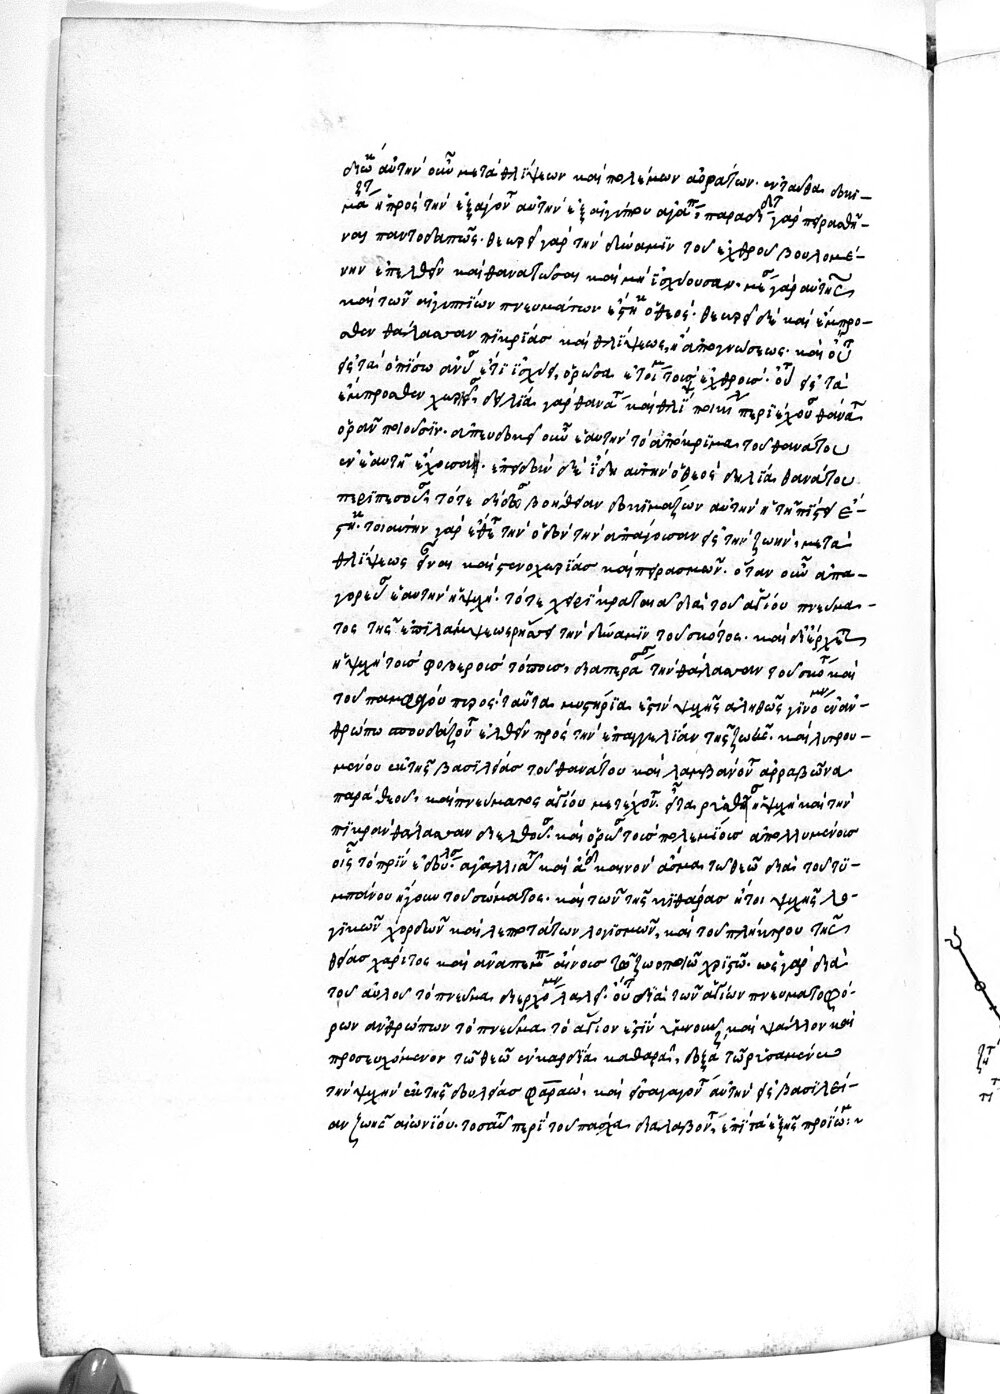 αὐτὴν οὖν μετὰ θλίψεων καὶ πολέμων ἀοράτων. ἐνταῦθα δοκι-
μά ἡ πρὸς τὴν ἐξαγον αὐτὴν ἐξ αἰγύπτου γὰρ πειρασθῆ-
ναι παντοδαπῶς. θεωρεῖ γὰρ τὴν δύναμιν τοῦ ἐχθροῦ βουλομέ-
νην ἐπελθεῖν καὶ θανατῶσαι καὶ μὴ ἰσχύουσαν. γὰρ αὐτῆς
καὶ τῶν αἰγυπτίων πνευμάτων ὁ θεός. θεωρεῖ δὲ καὶ ἔμπρο-
σθεν θάλασσαν πικρίας καὶ θλίψεως, ἀπογνώσεως. καὶ οὔτ
εἰς τὰ ὀπίσω ἔτι ἰσχύει, ὁρῶσα τοὺς ἐχθρούς. οὔτ εἰς τὰ
ἔμπροσθεν δειλία γὰρ θανάτ καὶ θλίψ ποικίλ περιέχουσ θάνατ
ὁρᾶν ποιοῦσιν. οὖν ἑαυτὴν τὸ ἀπόκριμα τοῦ θανάτου
ἐν ἑαυτῇ ἔχουσαν. ἐπειδὰν δὲ ἴδῃ αὐτὴν ὁ θεὸς δειλία θανάτου
περιπεσοῦσ τότε βοήθειαν δοκιμάζων αὐτὴν
τοιαύτην γὰρ τὴν ὁδὸν τὴν ἀπάγουσαν εἰς τὴν ζωήν, μετὰ
θλίψεως εἶναι καὶ στενοχωρίας καὶ πειρασμῶν. ὅταν οὖν ἀπα-
γορεύσ ἑαυτὴν ἡ ψυχή. τότε χειρὶ κραταιᾷ διὰ τοῦ ἁγίου πνεύμα-
τος τῆς ἐπιλάμψεως τὴν δύναμιν τοῦ σκότος. καὶ διέρχετ
ἡ ψυχὴ τοὺς φοβεροὺς τόπους, διαπερᾶ τὴν θάλασσαν τοῦ σκότ καὶ
τοῦ παμφάγου πυρός. ταῦτα μυστήρια ἐστὶν ψυχῆς ἀληθῶς γινόμν ἐν ἀν-
θρώπω σπουδάζοντ ἐλθεῖν πρὸς τὴν ἐπαγγελίαν τῆς ζωῆς. καὶ λυτρου-
μένου ἐκ τῆς βασιλείας τοῦ θανάτου καὶ λαμβάνοντ ἀρραβῶνα
παρὰ θεοῦ, καὶ πνεύματος ἁγίου μετέχοντ. εἶτα ἡ ψυχὴ καὶ τὴν
πικρὰν θάλασσαν διελθοῦσ. καὶ ὁρῶσ τοὺς πολεμίους ἀπολλυμένους
οἷς τὸ πρὶν ἀγαλλιᾶτ καὶ ᾄδ καινὸν ᾆσμα τῶ θεῶ διὰ τοῦ τυ-
μπάνου ἤγουν τοῦ σώματος. καὶ τῶν τῆς κιθάρας ἤτοι ψυχῆς λο-
γικῶν χορδῶν καὶ λεπτοτάτων λογισμῶν, καὶ τοῦ πλήκτρου τῆς
θείας χάριτος καὶ ἀναπέμπ αἴνους τῶ ζωοποιῶ χριστῶ. ὡς γὰρ διὰ
τοῦ αὐλοῦ τὸ πνεῦμα διερχόμν λαλεῖ. οὕτ διὰ τῶν ἁγίων πνευματοφό-
ρων ἀνθρώπων τὸ πνεῦμα τὸ ἅγιον ἐστὶν ὑμνοῦν καὶ ψάλλον καὶ
προσευχόμενον τῶ θεῶ ἐν καρδία καθαρᾶ, δόξα τῶ ῥυσαμένω
τὴν ψυχὴν ἐκ τῆς δουλείας φαραώ, καὶ εἰσαγαγόντ αὐτὴν εἰς βασιλεί-
αν ζωῆς αἰωνίου. τοσαῦτ περὶ τοῦ πάσχα διαλαβόντ, ἐπὶ τὰ ἑξῆς προΐωμ:~